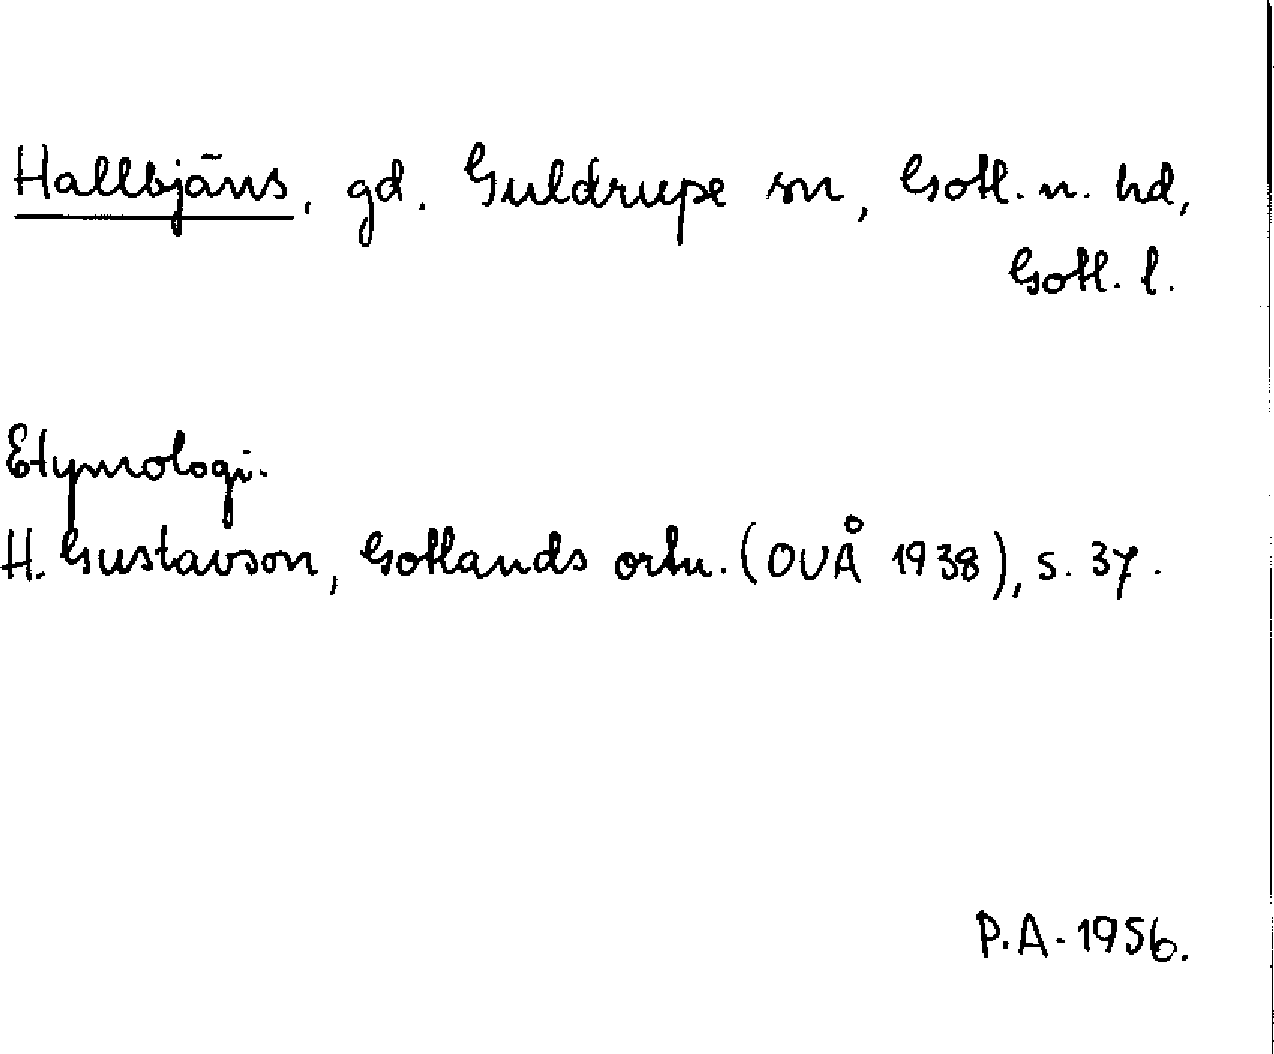 Hallbjäns, gd. Guldrupe sn, Gotl. n. hd,
Gotl. l.
Etymologi.
H. Gustavson, Gotlands ortn. (OUÅ 1938), s. 37.
P.A. 1956.